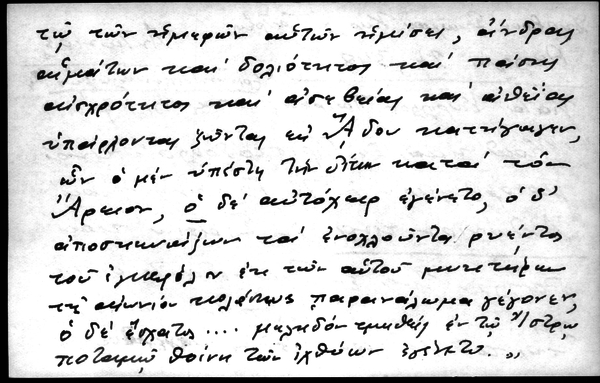 τῷ τῶν ἡμερῶν αὐτῶν ἡμίσει, ἄνδρας
αἱμάτων καὶ δολιότητος καὶ πάσης
αἰσχρότητος καὶ ἀσεβείας καὶ ἀθεΐας
ὑπάρχοντας ζῶντας εἰς Ἅδου κατήγαγεν,
ὧν ὁ μὲν ὑπέστη τὴν δίκην κατὰ τὸν
Ἄρειον, ὁ δὲ αὐτόχειρ ἐγένετο, ὁ δ'
ἀποσκυβαλίζων τὰ ἐνοχλοῦντα ῥυέντος
τοῦ ἐγκεφάλου ἐκ τῶν αὐτοῦ μυκτήρων
τῆς αἰωνίου κολάσεως παρανάλωμα γέγονεν,
ὁ δὲ ἔσχατος .... μεληδὸν τμηθεὶς ἐν τῷ Ἴστρῳ
ποταμῷ θοίνη τῶν ἰχθύων